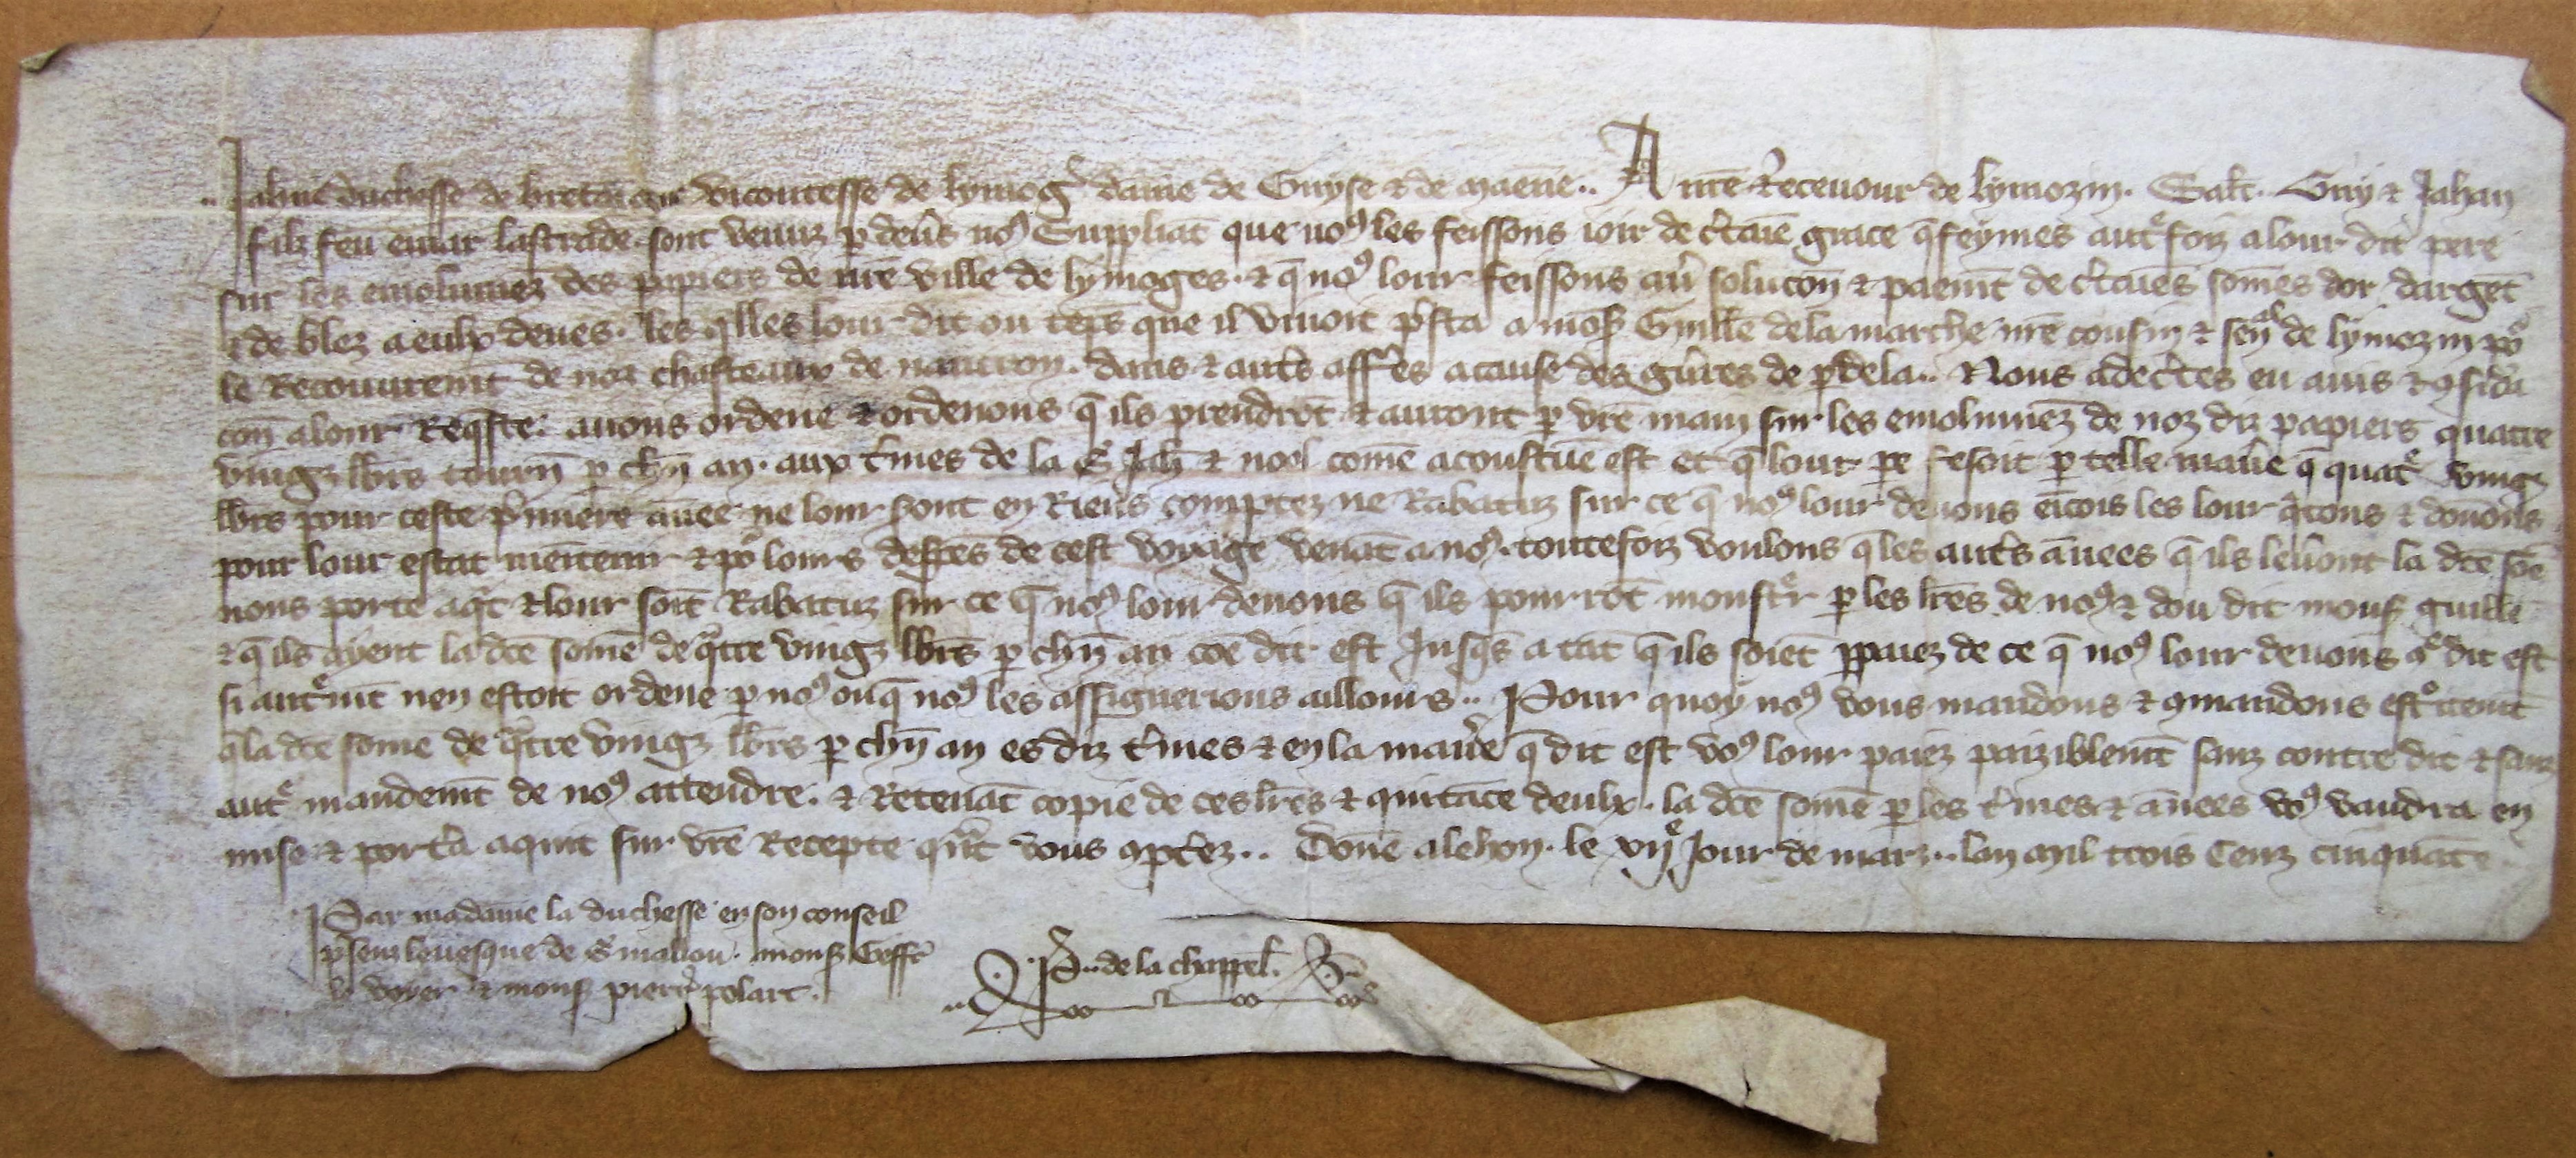 Jahne duchesse de bretaigne vicontesse de lymog' dame de Guyse & de maene.. A nr̄e Receuour de lymozin. Salt. Guy & Jahan
filz feu emar lastrade sont venuz p deūs no9 Suppliāt que no9 les feissons ioir de c'taīe grace q̄ feymes autfoiz a lour dit pere
sur les emolumez̄ des papiers de nr̄e ville de lymoges. & q̄ no9 lour feissons aū solucon̄ & paemt̄ de c'taīes som̄es dor dargēt
& de blez a eulx deues. les q̄lles lour dit ou tēps que il viuoit p'sta a mons Guille de la marche nr̄e cousin & sen̄al de lymozin po'
le Recouuremt̄ de noz chasteaux de nantron. dans & aut's aff'es a cause des gu'res de p dela.. Nous adec'tes eu auis & 9sid'a
con̄ a lour Req̄ste. auons ordene & ordenons q̄ ils prendrōt & auront p vr̄e main sur les emolumez̄ de noz diz papiers quatre
vingz lbr̄s tourn̄ p chn̄ an. aux t'mes de la S' Jah̄ & noel com̄e acoustume est et q̄ lour pe fesoit p telle man'e q̄ quat' vingz
lbr̄s pour ceste p'miere an̄ee ne lour sont en Riens comptez ne Rabatuz sur ce q̄ no9 lour deuons eīcois les lour q'ctons & donons
pour lour estat meītenir & po' lours desp̄es de cest voyage venāt a no9. toutefoiz voulons q̄ les aut's an̄ees q̄ ils leu'ont la dc̄e som̄e
nous porte aq't & lour soīt Rabatuz sur ce q̄ no9 lour deuons q̄ ils pourrōt monst'r p les lr̄es de no9 & dou dit mons guille
& q̄ ils ayent la dc̄e som̄e de q̄tre vingz lbr̄s p chn̄ an cōe dit est Jusq̄s a tāt q̄ ils soiēt ppaiez de ce q̄ no9 lour deuons q̄ dit est
si aut'mt̄ nen estoit ordene p no9 ou q̄ no9 les assignerions aillours.. Pour quoy no9 vous mandons & 9mandons est'ctemt̄
q̄ la dc̄e som̄e de q̄tre vingz lbr̄s p chn̄ an es diz t'mes & en la man'e q̄ dit est vo9 lour paiez paiziblemt̄ sanz contre dit & sanz
aut' mandemt̄ de no9 attendre. & Retenāt copie de ces lr̄es & quitāce deulx. la dc̄e som̄e p les t'mes & an̄ees vo9 vaudra en
mise & port'a aquit sur vr̄e Recepte qn̄t vous 9pt'ez.. Don̄e a lehon. le vije Jour de marz.. lan mil trois Cenz cinquāte
Par madame la duchesse en son conseil
p'senz leuesque de S' malou. mons Geffr'
le voyer & mons pierr' polart.
P.. de la chappel.